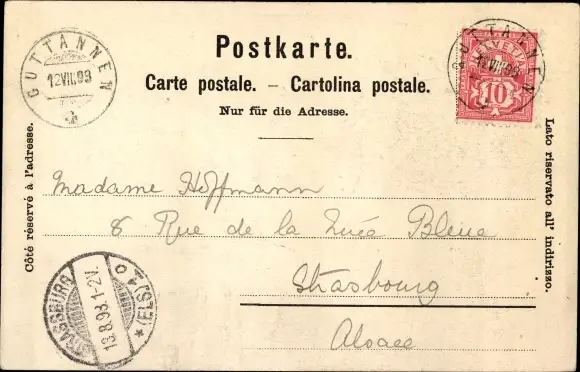 GUTTANNEN
12.VIII.98
Postkarte.
Carte postale. – Cartolina postale.
Nur für die Adresse.
HELVETIA
10
GUTTANNEN
12.VIII.98
Côté réservé à l'adresse.
Lato riservato all' indirizzo.
Madame Hoffmann
8 Rue de la Nuée Bleue
Strasbourg
Alsace
STRASSBURG (ELS) 1 o
13.8.98.1-2V.